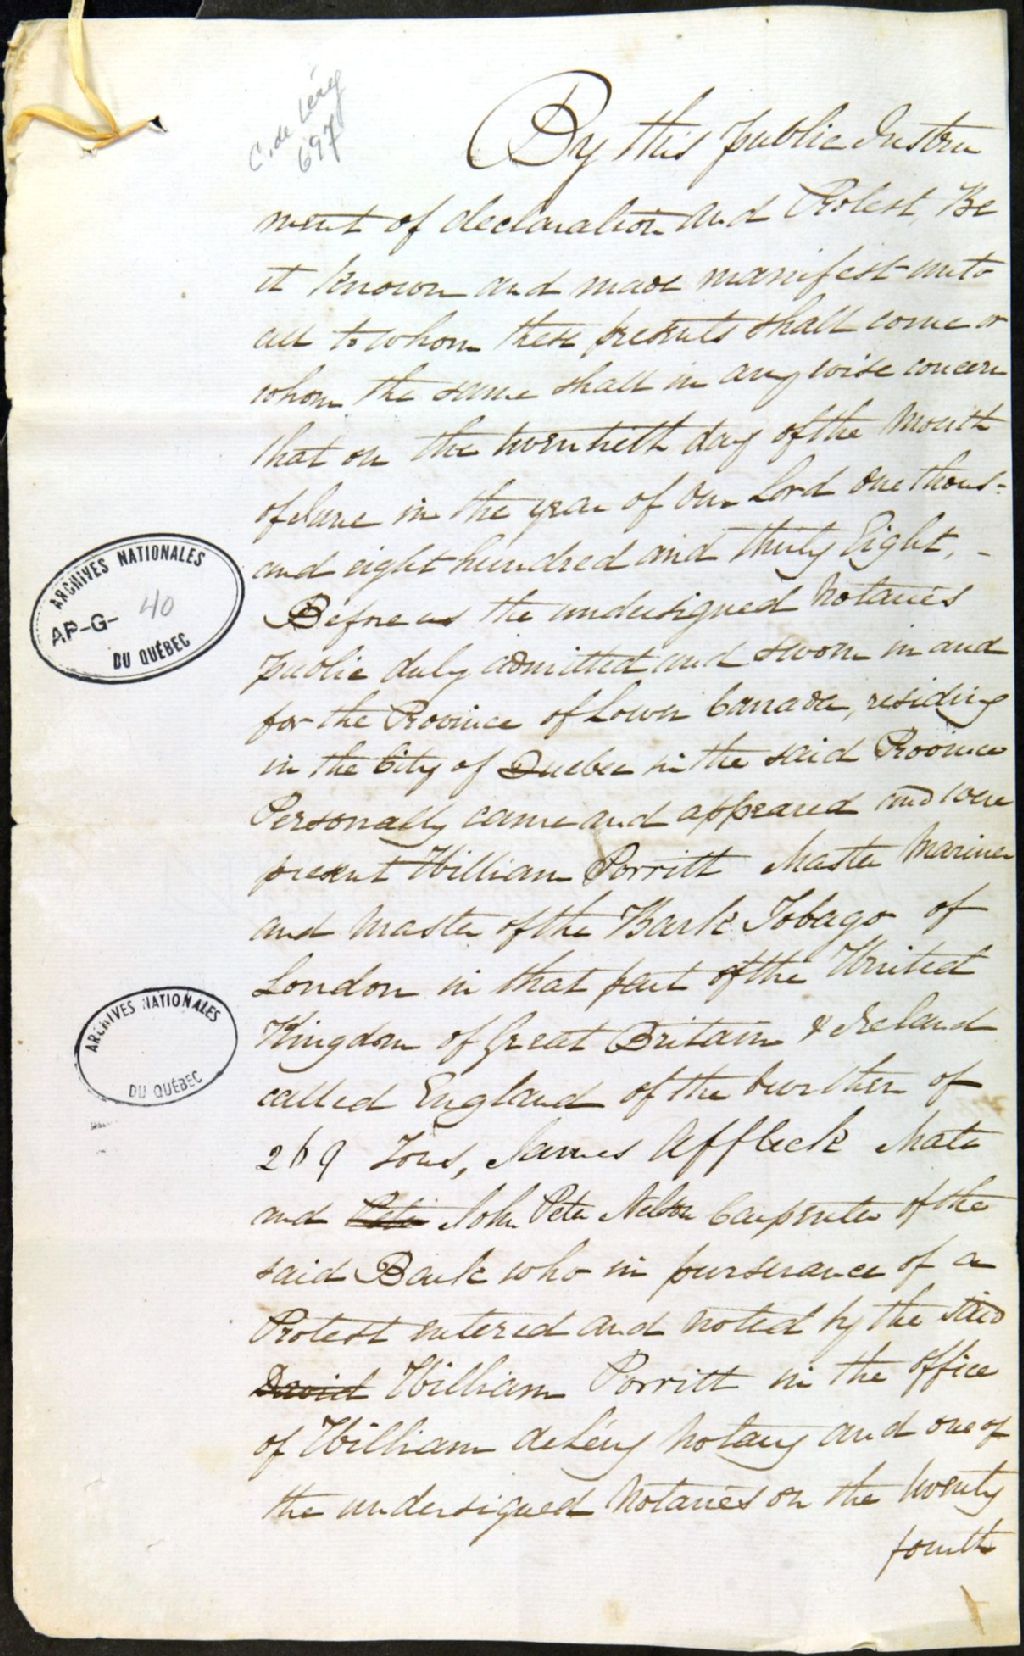 C. de Léry
697
By this public Instru
ment of declaration and Protest, Be
it known and made manifest unto
all to whom these presents shall come or
whom the same shall in any wise concern
that on the twentieth day of the Month
of June in the year of Our Lord One thous-
and eight hundred and thirty Eight, -
Before us the undersigned Notaries
public duly admitted and sworn in and
for the Province of Lower Canada, residing
in the City of Quebec in the said Province
Personally came and appeared and were
present William Porritt Master Mariner
and Master of the Bark Tobago of
London in that part of the United
Kingdom of Great Britain & Ireland
called England of the burthen of
269 Tons, James Affleck Mate
and Pete John Peter Nelson Carpenter of the
said Bark who in pursuance of a
Protest entered and noted by the said
David William Porritt in the office
of William de Léry Notary and one of
the undersigned Notaries on the twenty
fourth
ARCHIVES NATIONALES
AP-G- 40
DU QUÉBEC
ARCHIVES NATIONALES
DU QUÉBEC